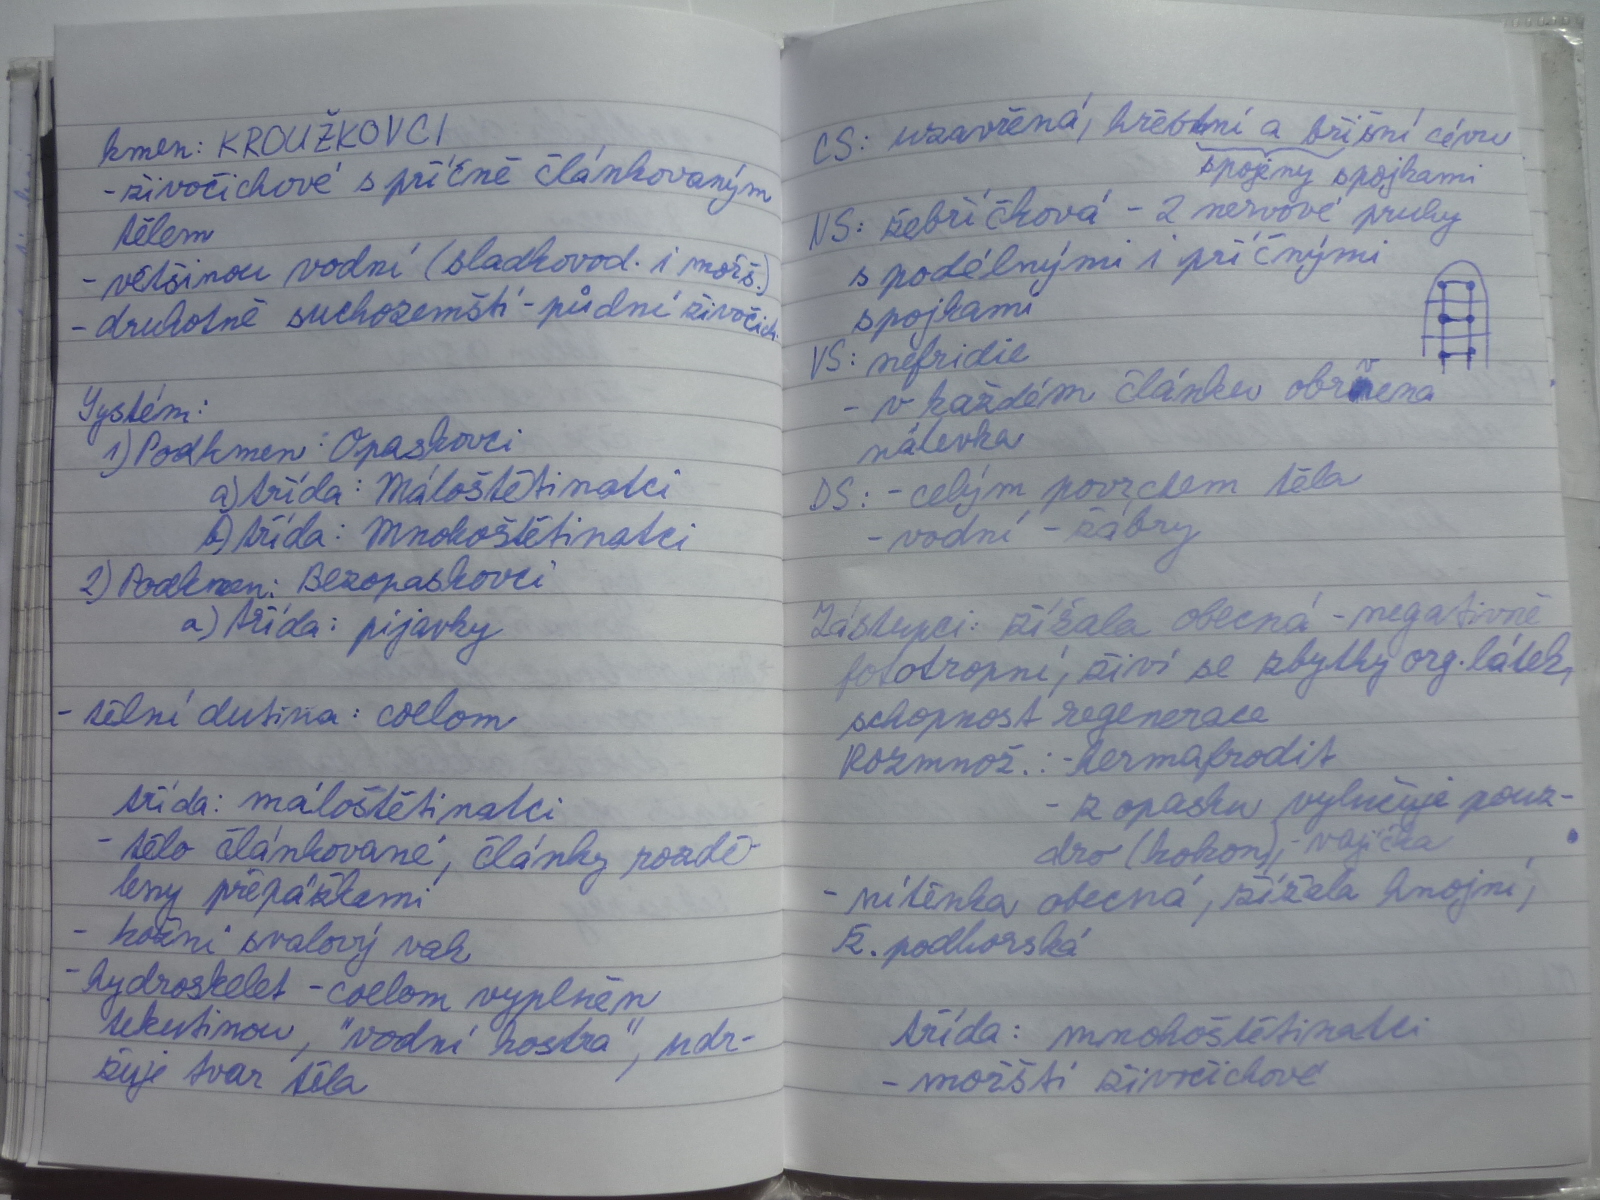 kmen: KROUŽKOVCI
- živočichové s příčně článkovaným
tělem
- většinou vodní (sladkovod. i mořš.)
- druhotně suchozemští - půdní živočich.
Systém:
1) Podkmen: Opaskovci
a) třída: Máloštětinatci
b) třída: Mnohoštětinatci
2) Podkmen: Bezopaskovci
a) třída: pijavky
- tělní dutina: coelom
třída: máloštětinatci
- tělo článkované, články rozdě-
leny přepážkami
- kožní svalový vak
- hydroskelet - coelom vyplněn
tekutinou, "vodní kostra", udr-
žuje tvar těla
CS: uzavřená, hřbetní a břišní cévu
spojeny spojkami
NS: žebříčková - 2 nervové pruhy
s podélnými i příčnými
spojkami
VS: nefridie
- v každém článku obrvená
nálevka
DS: - celým povrchem těla
- vodní - žábry
Zástupci: žížala obecná - negativně
fototropní, živí se zbytky org. látek,
schopnost regenerace
Rozmnož.: - hermafrodit
- z opasku vylučuje pouz-
dro (kokon), - vajíčka
- nitěnka obecná, žížala hnojní,
ž. podhorská
třída: mnohoštětinatci
- mořští živočichové